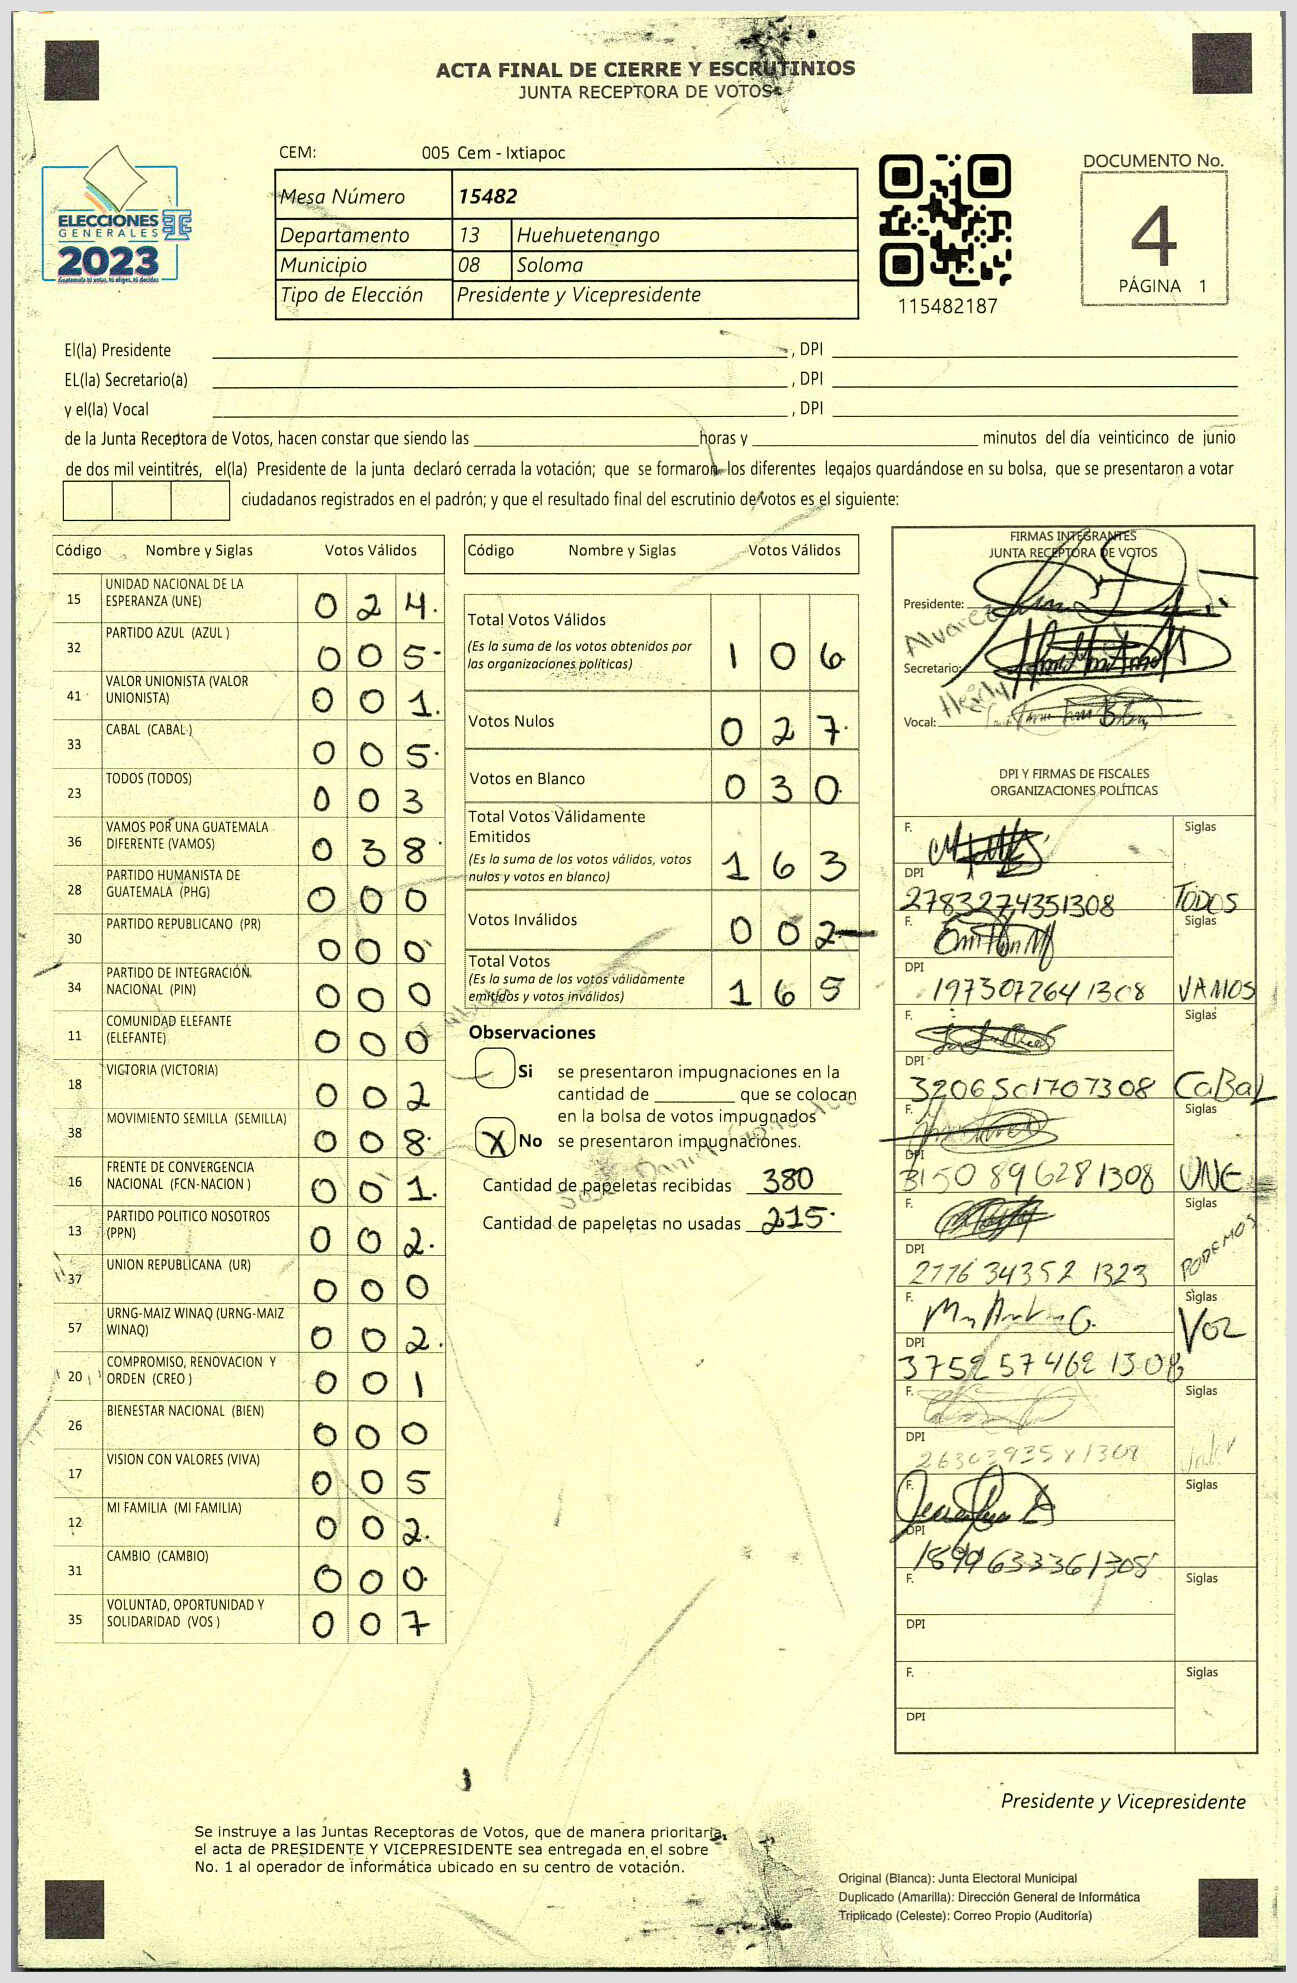 ACTA FINAL DE CIERRE Y ESCRUTINIOS
JUNTA RECEPTORA DE VOTOS
ELECCIONES
GENERALES
2023
CEM: 005 Cem - Ixtiapoc
Mesa Número 15482
Departamento 13 Huehuetenango
Municipio 08 Soloma
Tipo de Elección Presidente y Vicepresidente
115482187
DOCUMENTO No.
4
PÁGINA 1
El(la) Presidente , DPI
EL(la) Secretario(a) , DPI
y el(la) Vocal , DPI
de la Junta Receptora de Votos, hacen constar que siendo las horas y minutos del día veinticinco de junio
de dos mil veintitrés, el(la) Presidente de la junta declaró cerrada la votación; que se formaron los diferentes legajos guardándose en su bolsa, que se presentaron a votar
ciudadanos registrados en el padrón; y que el resultado final del escrutinio de votos es el siguiente:
Código Nombre y Siglas Votos Válidos
15 UNIDAD NACIONAL DE LA
ESPERANZA (UNE) 0 2 4
32 PARTIDO AZUL (AZUL ) 0 0 5
41 VALOR UNIONISTA (VALOR
UNIONISTA) 0 0 1
33 CABAL (CABAL ) 0 0 5
23 TODOS (TODOS) 0 0 3
36 VAMOS POR UNA GUATEMALA
DIFERENTE (VAMOS) 0 3 8
28 PARTIDO HUMANISTA DE
GUATEMALA (PHG) 0 0 0
30 PARTIDO REPUBLICANO (PR) 0 0 0
34 PARTIDO DE INTEGRACIÓN
NACIONAL (PIN) 0 0 0
11 COMUNIDAD ELEFANTE
(ELEFANTE) 0 0 0
18 VICTORIA (VICTORIA) 0 0 2
38 MOVIMIENTO SEMILLA (SEMILLA) 0 0 8
16 FRENTE DE CONVERGENCIA
NACIONAL (FCN-NACION ) 0 0 1
13 PARTIDO POLITICO NOSOTROS
(PPN) 0 0 2
37 UNION REPUBLICANA (UR) 0 0 0
57 URNG-MAIZ WINAQ (URNG-MAIZ
WINAQ) 0 0 2
20 COMPROMISO, RENOVACION Y
ORDEN (CREO ) 0 0 1
26 BIENESTAR NACIONAL (BIEN) 0 0 0
17 VISION CON VALORES (VIVA) 0 0 5
12 MI FAMILIA (MI FAMILIA) 0 0 2
31 CAMBIO (CAMBIO) 0 0 0
35 VOLUNTAD, OPORTUNIDAD Y
SOLIDARIDAD (VOS ) 0 0 7
Código Nombre y Siglas Votos Válidos
Total Votos Válidos
(Es la suma de los votos obtenidos por
las organizaciones políticas) 1 0 6
Votos Nulos 0 2 7
Votos en Blanco 0 3 0
Total Votos Válidamente
Emitidos
(Es la suma de los votos válidos, votos
nulos y votos en blanco) 1 6 3
Votos Inválidos 0 0 2
Total Votos
(Es la suma de los votos válidamente
emitidos y votos inválidos) 1 6 5
Observaciones
Si se presentaron impugnaciones en la
cantidad de que se colocan
en la bolsa de votos impugnados
X No se presentaron impugnaciones.
Cantidad de papeletas recibidas 380
Cantidad de papeletas no usadas 215
FIRMAS INTEGRANTES
JUNTA RECEPTORA DE VOTOS
Presidente:
Alvarez
Secretario:
Vocal:
DPI Y FIRMAS DE FISCALES
ORGANIZACIONES POLÍTICAS
F. Siglas
DPI
2783274351308 TODOS
F. Siglas
DPI
1973072641308 VAMOS
F. Siglas
DPI
3206501707308 CABAL
F. Siglas
DPI
3150896281308 UNE
F. Siglas
DPI
2776343521323 PODEMOS
F. Siglas
DPI
3752574621308 Voz
F. Siglas
DPI
Valor
F. Siglas
DPI
1899633361308
F. Siglas
DPI
F. Siglas
DPI
Presidente y Vicepresidente
Se instruye a las Juntas Receptoras de Votos, que de manera prioritaria,
el acta de PRESIDENTE Y VICEPRESIDENTE sea entregada en el sobre
No. 1 al operador de informática ubicado en su centro de votación.
Original (Blanca): Junta Electoral Municipal
Duplicado (Amarilla): Dirección General de Informática
Triplicado (Celeste): Correo Propio (Auditoría)